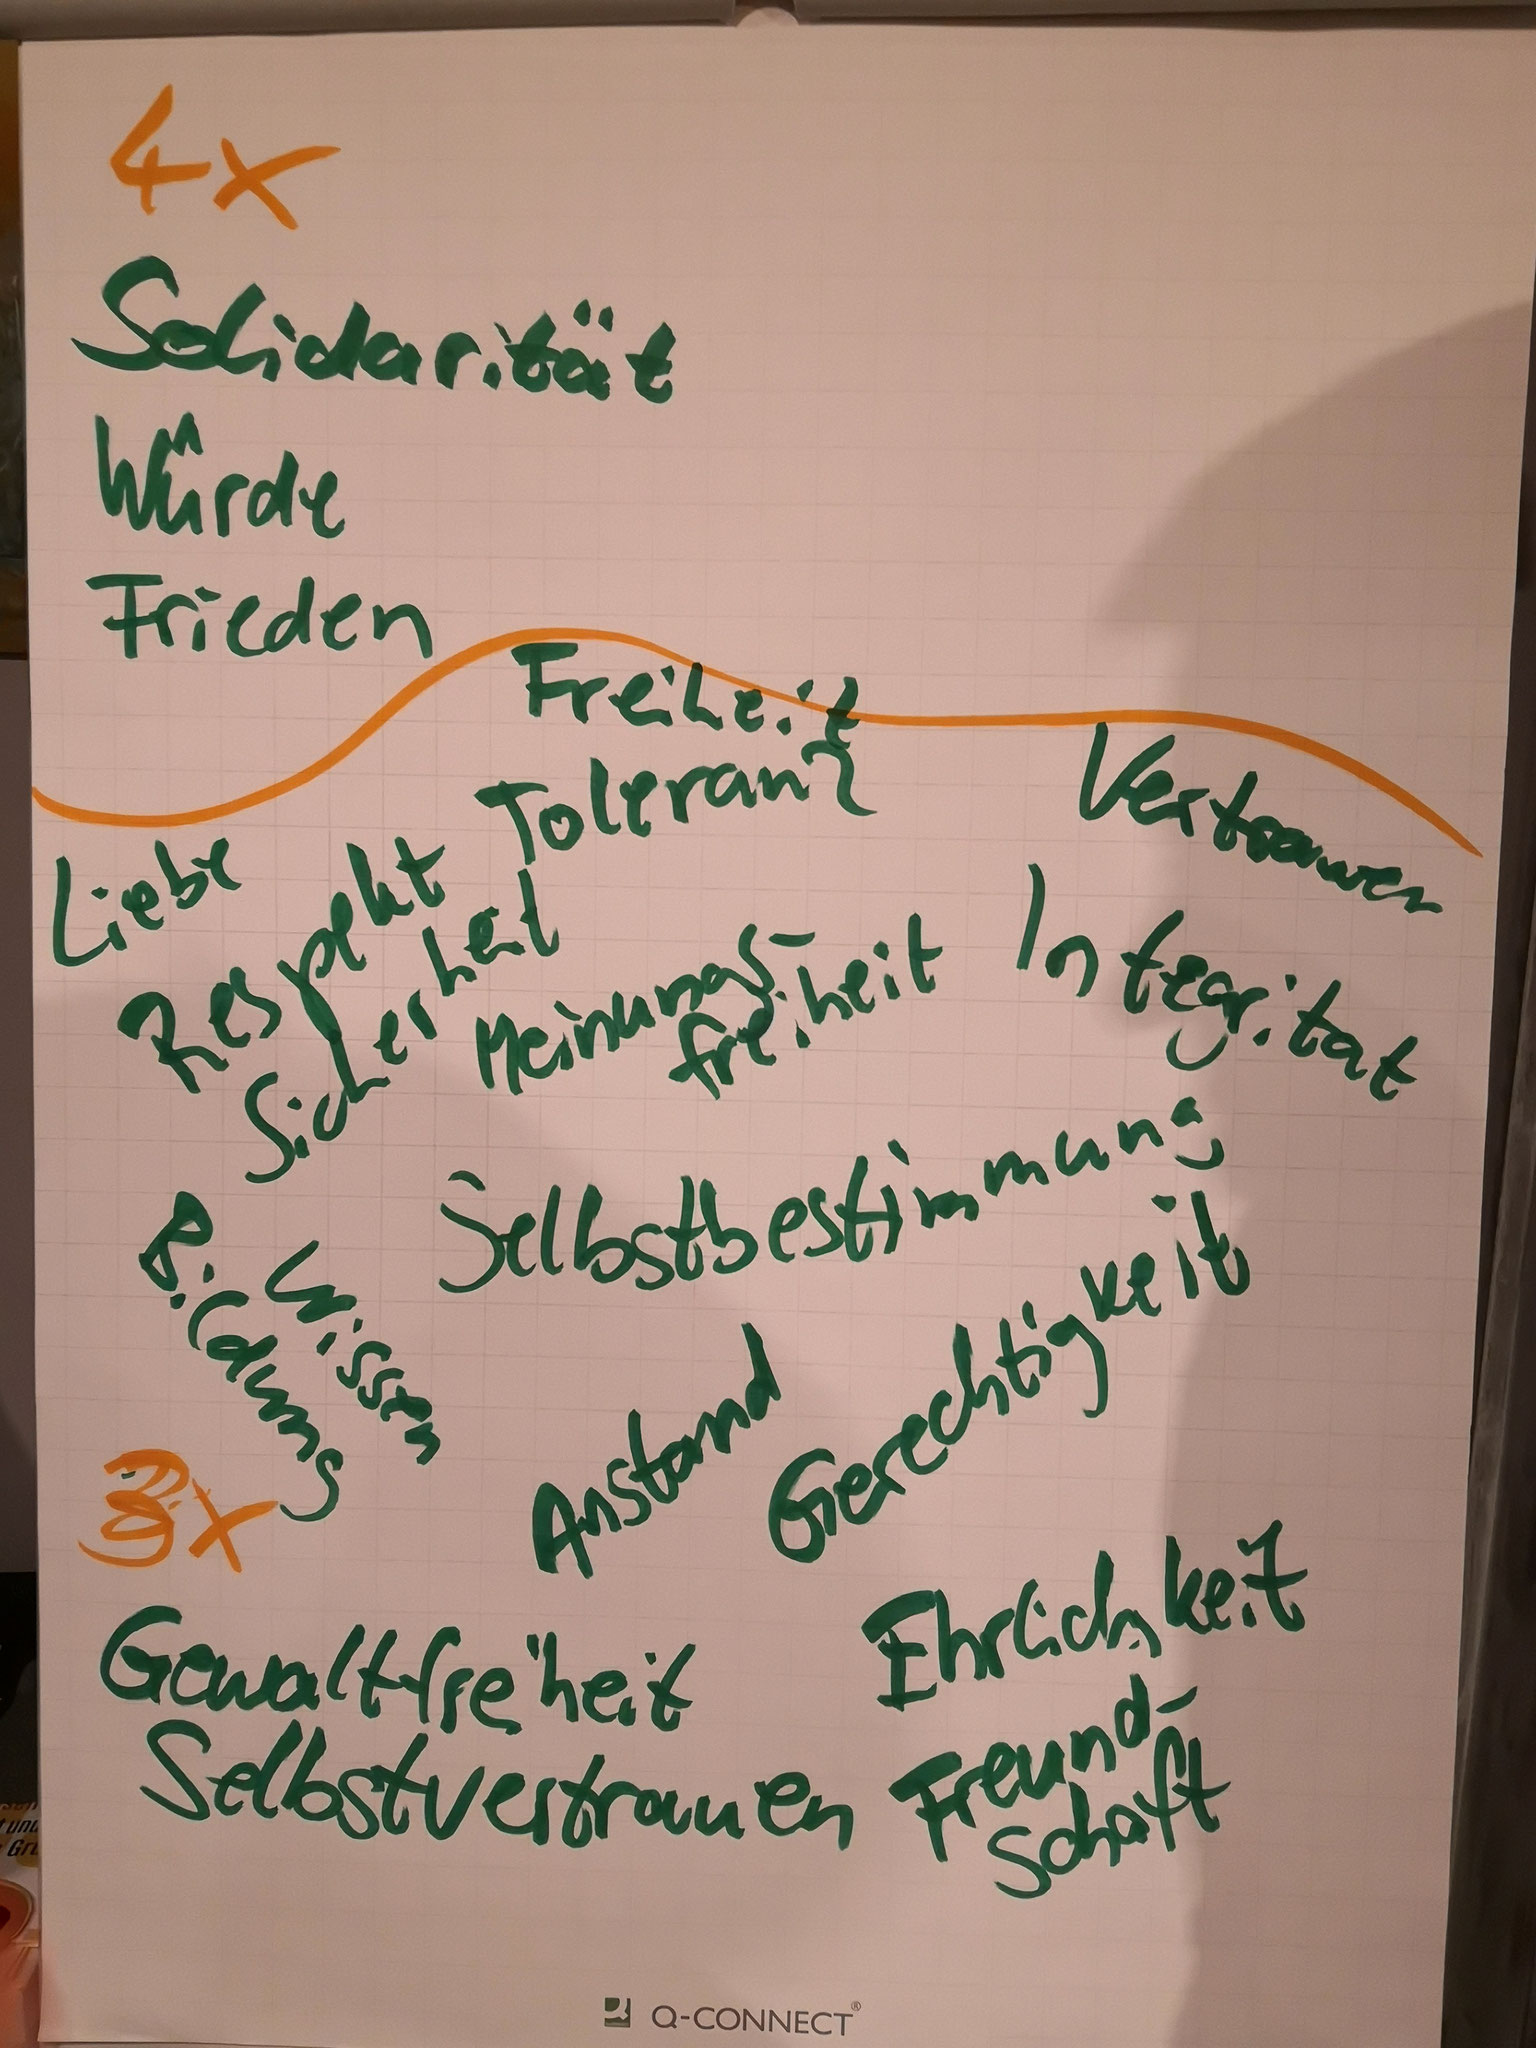 4x
Solidarität
Würde
Frieden
Freiheit
Toleranz
Vertrauen
Liebe
Respekt
Sicherheit
Meinungs-
freiheit
Integrität
Selbstbestimmung
Bildung
Wissen
Anstand
Gerechtigkeit
3x
Gewaltfreiheit
Selbstvertrauen
Ehrlichkeit
Freund-
schaft
Q-CONNECT®